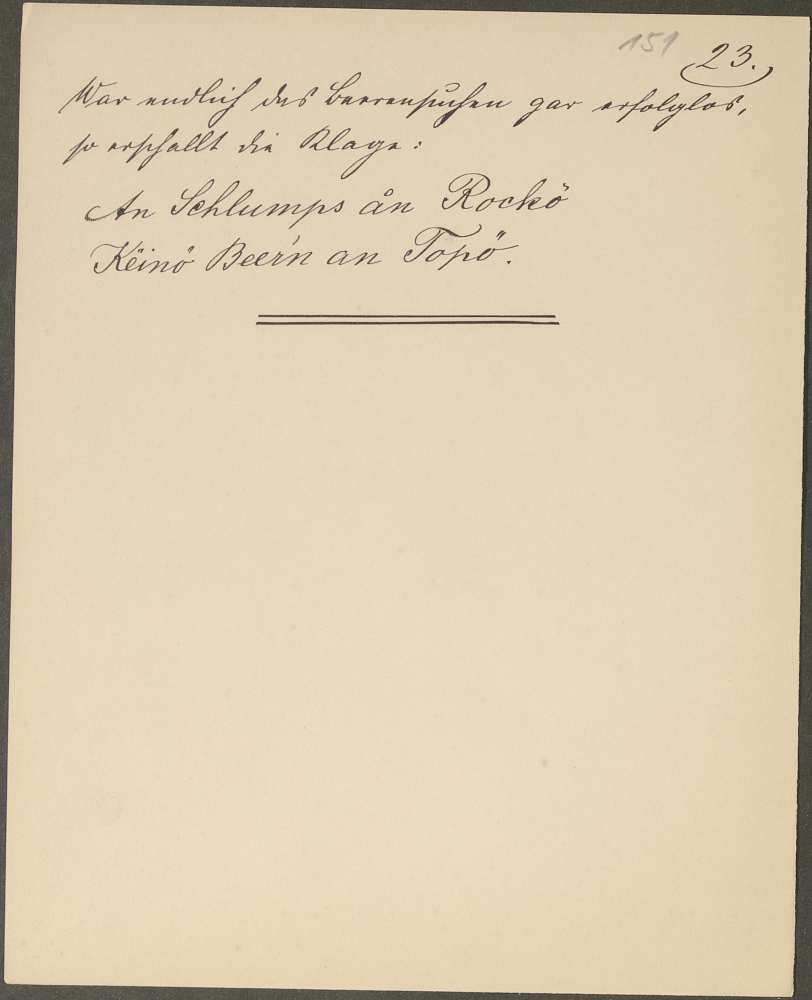 151 23.
War endlich das Beerensuchen gar erfolglos,
so erschallt die Klage:
An Schlumps ån Rockö
Këinö Beer'n an Topö.